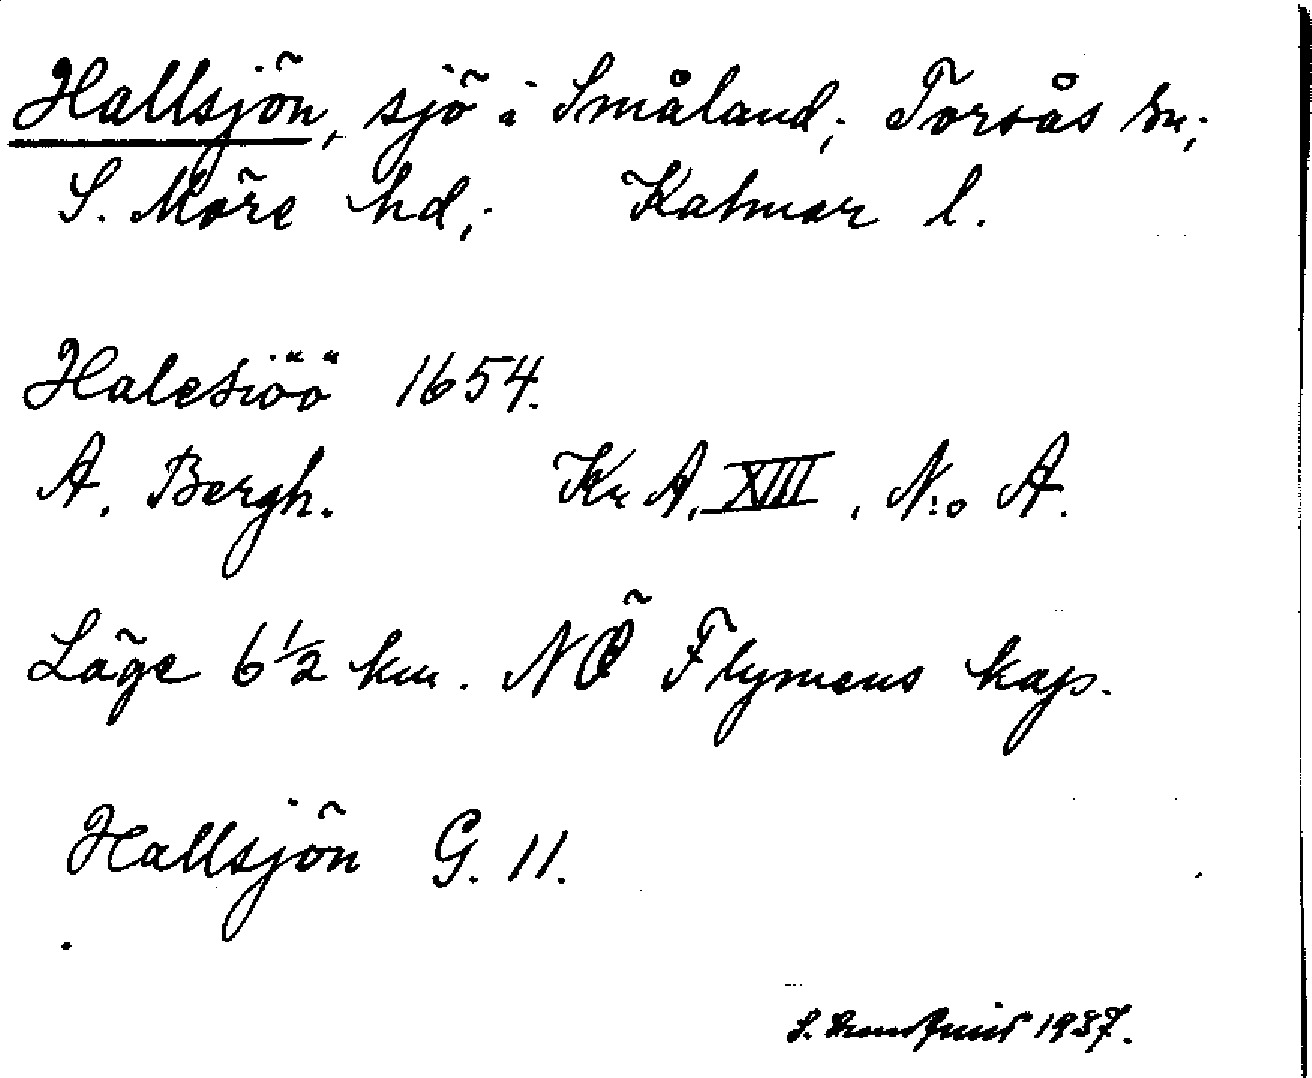 Hallsjön, sjö i Småland; Torsås sn;
S. Möre hd; Kalmar l.
Halesiöö 1654.
A. Bergh. Kr A, XIII, N:o A.
Läge 6 1/2 km. NÖ Flymens kap.
Hallsjön G. 11.
S. 1937.